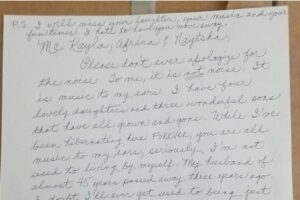 P.S. I will miss your laughter, your music and your
fun times. I hate to have you move away.
Ms Kayla, Africa & Naytsha,
Please don't ever apologize for
the noise. To me, it is not noise. It
is music to my ears. I have four
lovely daughters and three wonderful sons
that have all grown and gone. While I've
been hibernating here FOREVER, you are all
music to my ears, seriously. I'm not
used to living by myself. My husband of
almost 45 years passed away three years ago.
I doubt I'll ever get used to being just